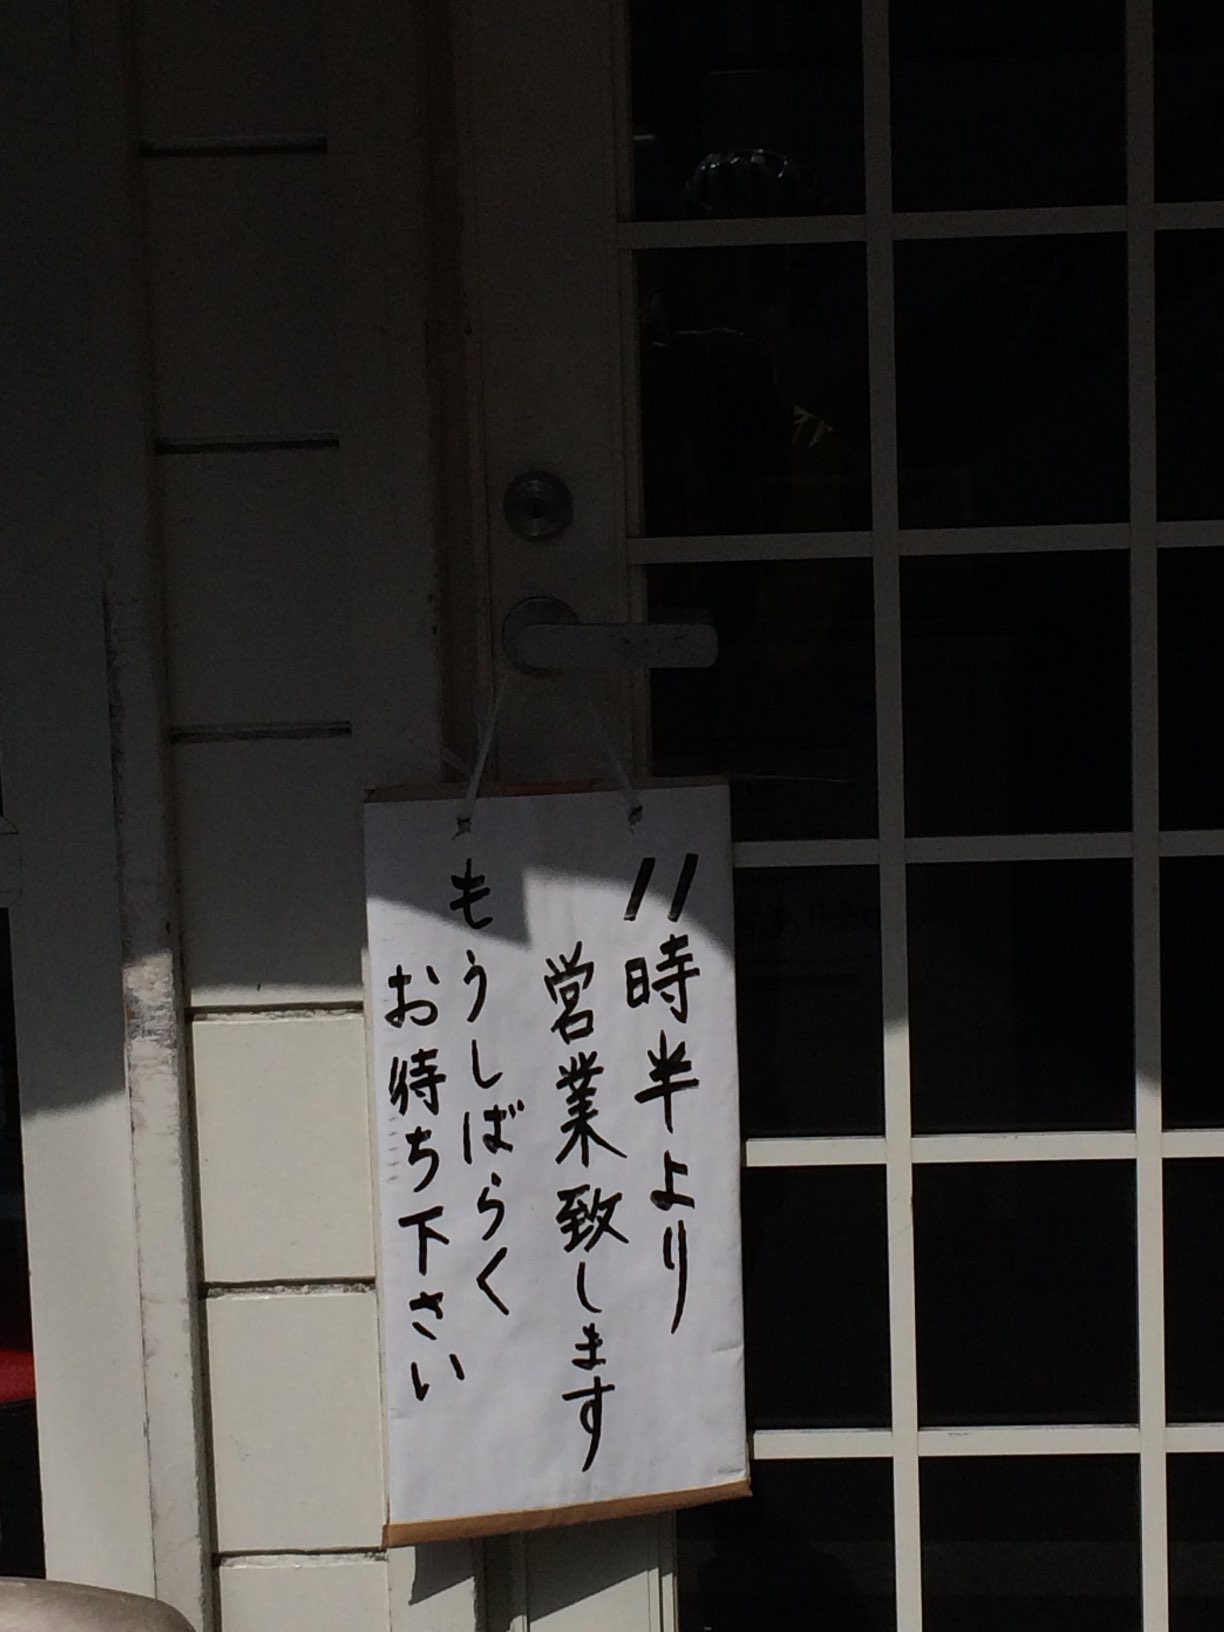 11時半より
営業致します
もうしばらく
お待ち下さい